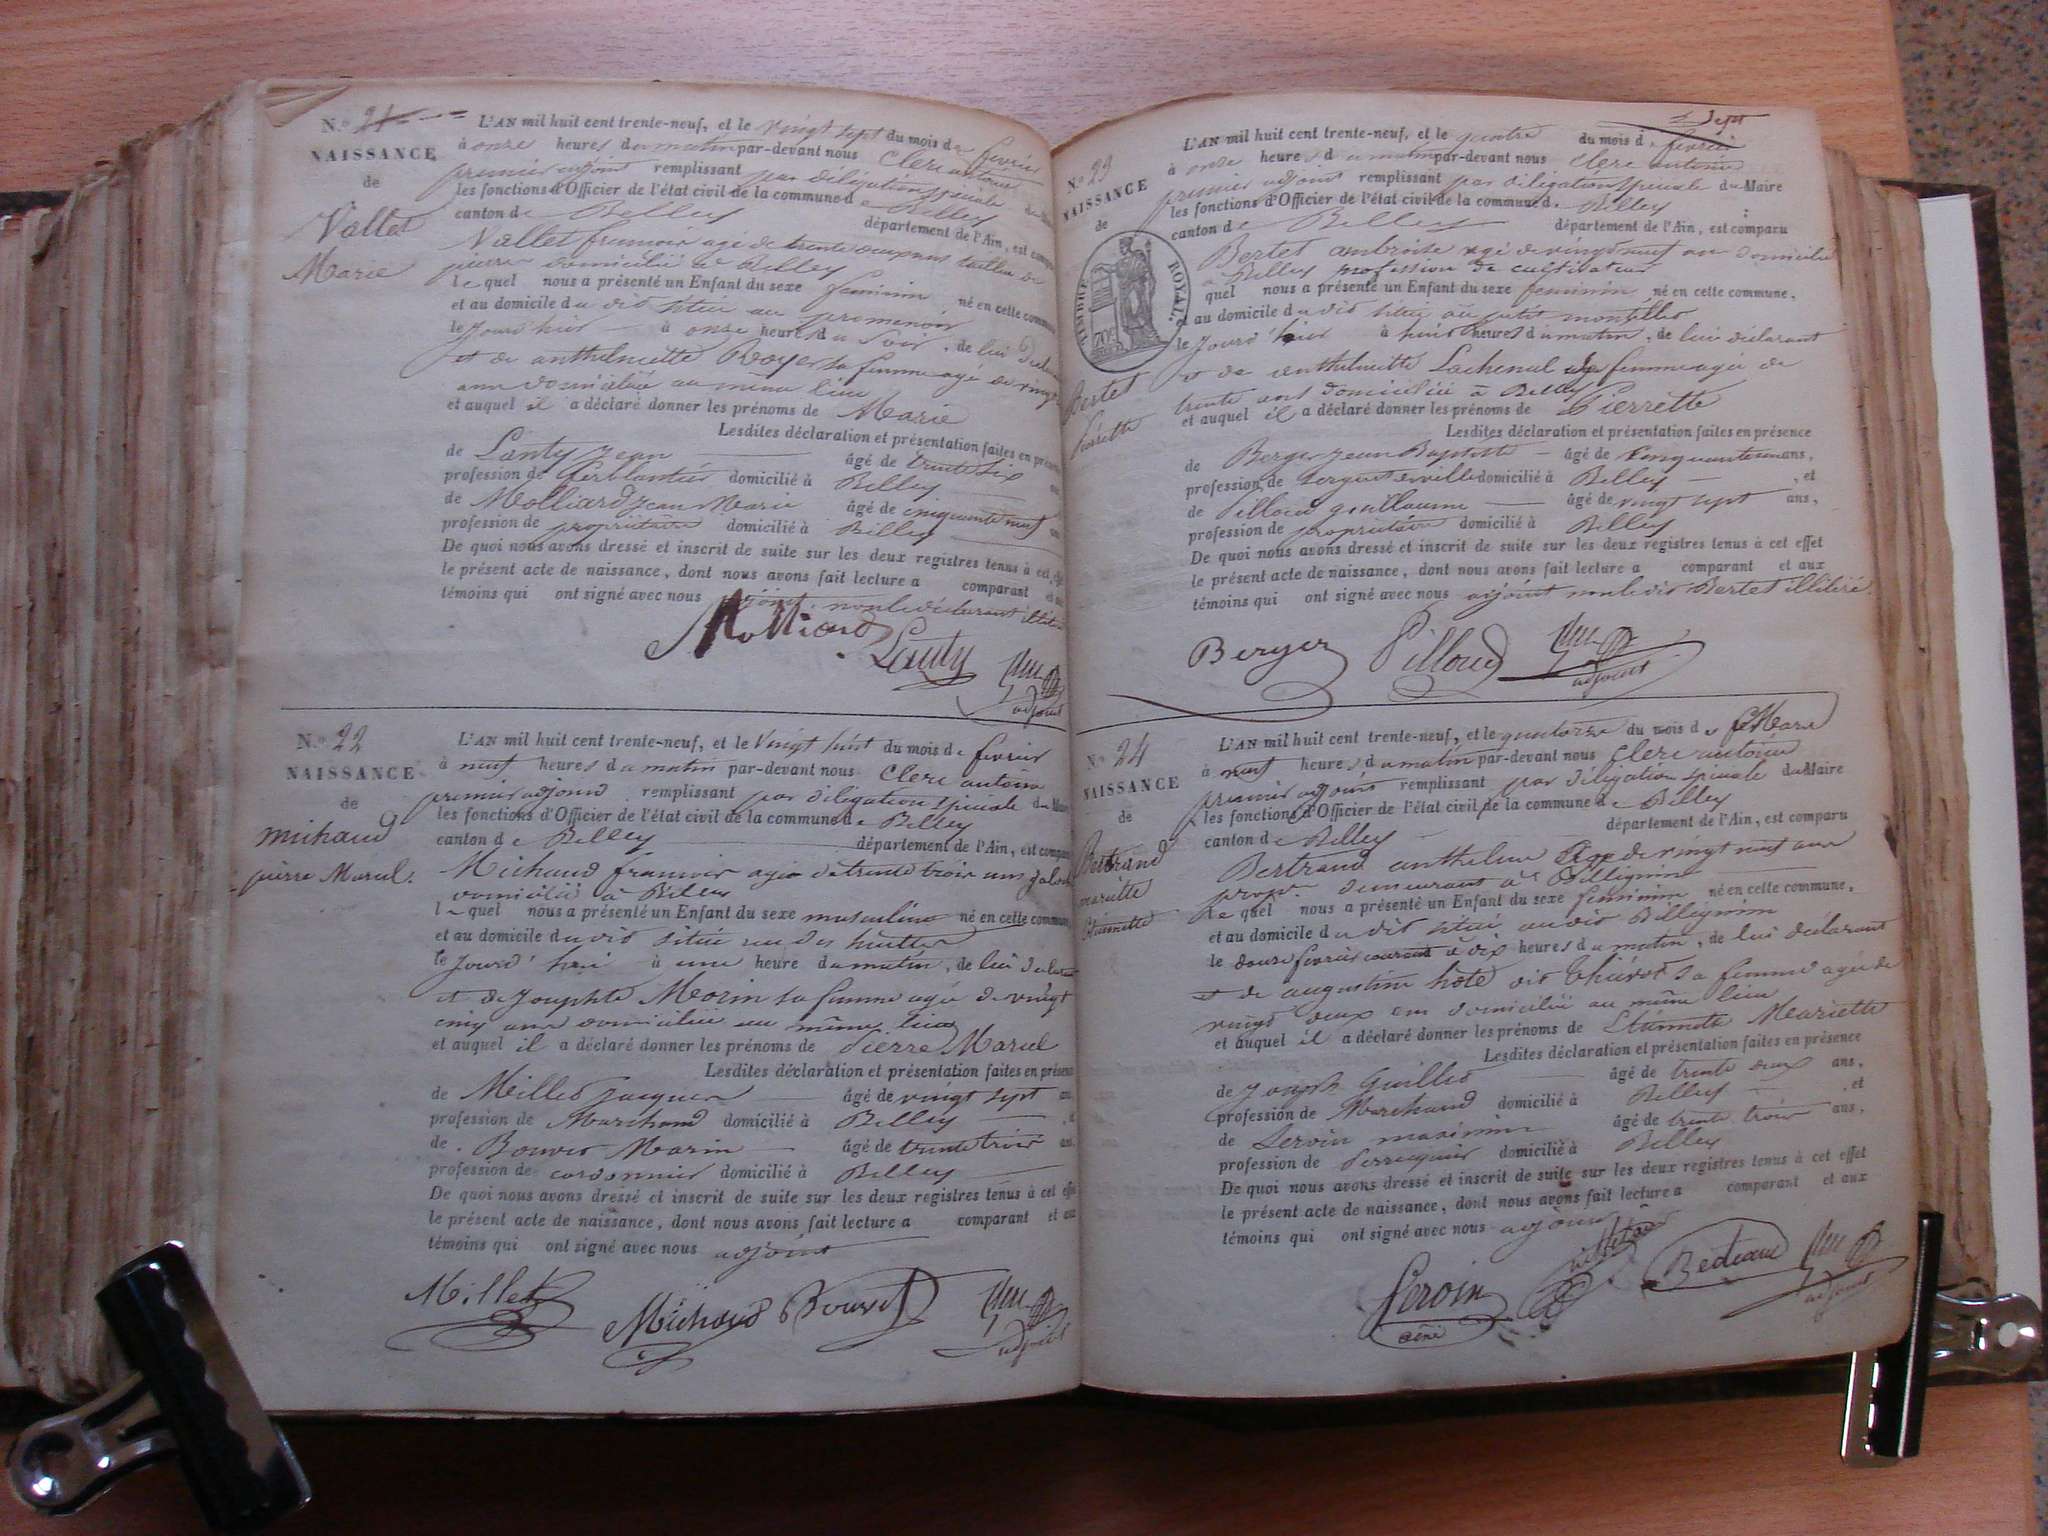 N.° 21
NAISSANCE
de
Vallet
Marie
L'AN mil huit cent trente-neuf, et le vingt sept du mois de fevrier
à onze heures du matin par-devant nous Clerc antoine
premier adjoint remplissant par déligation spéciale du
les fonctions d'Officier de l'état civil de la commune de Belley
canton de Belley département de l'Ain, est comparu
Vallet francois agé de trente deux ans tailleur de
pierre domicilié à Belley
le quel nous a présenté un Enfant du sexe feminin né en cette commune
et au domicile du dit situé au promenoir
le jourd'hier à onze heures du Soir, de lui déclarant
et de anthelmette Royer sa femme agé de vingt
ans domiciliée au même lieu
et auquel il a déclaré donner les prénoms de Marie
Lesdites déclaration et présentation faites en présence
de Lanty Jean âgé de trente six
profession de ferblantier domicilié à Belley
de Molliard Jean Marie âgé de cinquante neuf
profession de propriétaire domicilié à Belley
De quoi nous avons dressé et inscrit de suite sur les deux registres tenus à cet effet
le présent acte de naissance, dont nous avons fait lecture a comparant et aux
témoins qui ont signé avec nous adjoint, non le déclarant illitéré
Molliard Lanty
adjoint
N.° 22
NAISSANCE
de
Michaud
pierre Marcel.
L'AN mil huit cent trente-neuf, et le vingt huit du mois de fevrier
à neuf heures du matin par-devant nous Clerc antoine
premier adjoint remplissant par déligation spéciale du Maire
les fonctions d'Officier de l'état civil de la commune de Belley
canton de Belley département de l'Ain, est comparu
Michaud francois agé de trente trois ans
domicilié à Belley
le quel nous a présenté un Enfant du sexe masculin né en cette commune
et au domicile du dit situé
le jourd'hui à une heure du matin, de lui déclarant
et de Josephte Morin sa femme agée de vingt
cinq ans domiciliée au même lieu
et auquel il a déclaré donner les prénoms de Pierre Marcel
Lesdites déclaration et présentation faites en présence
de Millet Jacques âgé de vingt sept ans
profession de Marchand domicilié à Belley
de Bouvet Marin âgé de trente trois ans
profession de cordonnier domicilié à Belley
De quoi nous avons dressé et inscrit de suite sur les deux registres tenus à cet effet
le présent acte de naissance, dont nous avons fait lecture a comparant et aux
témoins qui ont signé avec nous adjoint
Millet Michaud Bouvet
adjoint
N.° 23
NAISSANCE
de
TIMBRE ROYAL.
70c
Bertet
Pierrette
L'AN mil huit cent trente-neuf, et le quatre du mois d fevrier
à onze heures du matin par-devant nous Clerc antoine
premier adjoint remplissant par déligation spéciale du Maire
les fonctions d'Officier de l'état civil de la commune d. Belley
canton de Belley département de l'Ain, est comparu
Bertet ambroise agé de vingt neuf ans domicilié
à Belley profession de cultivateur
quel nous a présenté un Enfant du sexe feminin né en cette commune,
et au domicile du dit situé au petit
le jourd'hier à huit heures du matin, de lui déclarant
et de anthelmette Lachenal sa femme agée de
trente ans domiciliée à Belley
et auquel il a déclaré donner les prénoms de Pierrette
Lesdites déclaration et présentation faites en présence
de Berger Jean Baptiste âgé de cinquante ans,
profession de sergent de ville domicilié à Belley, et
de Pilloud guillaume âgé de vingt sept ans,
profession de propriétaire domicilié à Belley
De quoi nous avons dressé et inscrit de suite sur les deux registres tenus à cet effet
le présent acte de naissance, dont nous avons fait lecture a comparant et aux
témoins qui ont signé avec nous adjoint non le dit Bertet illitéré.
Berger Pilloud
adjoint
N.° 24
NAISSANCE
de
Bertrand
mariette
Etiennette
L'AN mil huit cent trente-neuf, et le quatorze du mois de Mars
à neuf heures du matin par-devant nous Clerc antoine
premier adjoint remplissant par déligation spéciale du Maire
les fonctions d'Officier de l'état civil de la commune de Belley
canton de Belley département de l'Ain, est comparu
Bertrand anthelme Agé de vingt neuf ans
demeurant à Billignin
le quel nous a présenté un Enfant du sexe feminin né en cette commune,
et au domicile du dit situé au dit Billignin
le douze fevrier courant à dix heures du matin, de lui déclarant
et de augustine hote dit sa femme agée de
vingt deux ans domiciliée au même lieu
et auquel il a déclaré donner les prénoms de Etiennette Mariette
Lesdites déclaration et présentation faites en présence
de Joseph Guillet âgé de trente deux ans,
profession de Marchand domicilié à Belley, et
de maximin âgé de trente trois ans,
profession de Perruquier domicilié à Belley
De quoi nous avons dressé et inscrit de suite sur les deux registres tenus à cet effet
le présent acte de naissance, dont nous avons fait lecture a comparant et aux
témoins qui ont signé avec nous adjoint
adjoint